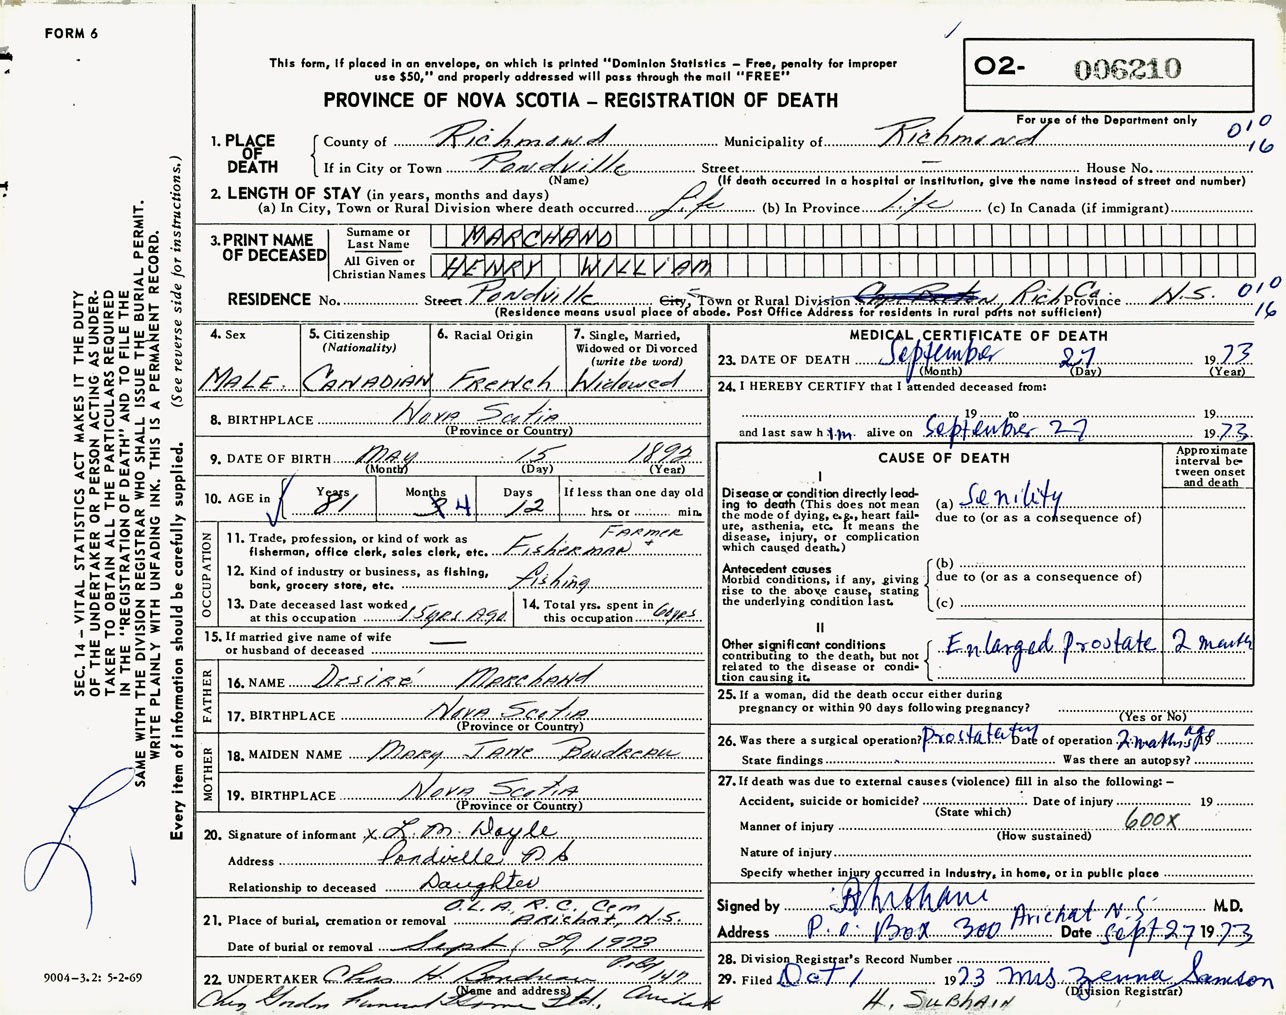 FORM 6
This form, if placed in an envelope, on which is printed "Dominion Statistics – Free, penalty for improper
use $50," and properly addressed will pass through the mail "FREE"
PROVINCE OF NOVA SCOTIA – REGISTRATION OF DEATH
O2- 006210
For use of the Department only
010
16
1. PLACE OF DEATH
County of Richmond Municipality of Richmond
If in City or Town Pondville Street – House No.
(Name) (If death occurred in a hospital or institution, give the name instead of street and number)
2. LENGTH OF STAY (in years, months and days)
(a) In City, Town or Rural Division where death occurred Life (b) In Province life (c) In Canada (if immigrant)
3. PRINT NAME OF DECEASED
Surname or Last Name MARCHAND
All Given or Christian Names HENRY WILLIAM
RESIDENCE No. Street Pondville City, Town or Rural Division Cape Breton, Rich Co. Province N.S. 010
16
(Residence means usual place of abode. Post Office Address for residents in rural parts not sufficient)
SEC. 14 – VITAL STATISTICS ACT MAKES IT THE DUTY
OF THE UNDERTAKER OR PERSON ACTING AS UNDER-
TAKER TO OBTAIN ALL THE PARTICULARS REQUIRED
IN THE "REGISTRATION OF DEATH" AND TO FILE THE
SAME WITH THE DIVISION REGISTRAR WHO SHALL ISSUE THE BURIAL PERMIT.
WRITE PLAINLY WITH UNFADING INK. THIS IS A PERMANENT RECORD.
Every item of information should be carefully supplied. (See reverse side for instructions.)
4. Sex
MALE.
5. Citizenship
(Nationality)
CANADIAN
6. Racial Origin
French
7. Single, Married,
Widowed or Divorced
(write the word)
Widowed
8. BIRTHPLACE Nova Scotia
(Province or Country)
9. DATE OF BIRTH May 15 1892
(Month) (Day) (Year)
10. AGE in
Years 81
Months 4
Days 12
If less than one day old
hrs. or min.
OCCUPATION
11. Trade, profession, or kind of work as
fisherman, office clerk, sales clerk, etc. Fisherman + Farmer
12. Kind of industry or business, as fishing,
bank, grocery store, etc. fishing
13. Date deceased last worked
at this occupation 15yrs Ago
14. Total yrs. spent in
this occupation 60yrs
15. If married give name of wife
or husband of deceased —
FATHER
16. NAME Desiré Marchand
17. BIRTHPLACE Nova Scotia
(Province or Country)
MOTHER
18. MAIDEN NAME Mary Jane Boudreau
19. BIRTHPLACE Nova Scotia
(Province or Country)
20. Signature of informant x L. M. Doyle
Address Pondville
Relationship to deceased Daughter
21. Place of burial, cremation or removal O.L.A. R.C. Cem
Arichat, N.S.
Date of burial or removal Sept, 29, 1973
22. UNDERTAKER Chas H. Boudreau 147
(Name and address)
Gordon Funeral Home Ltd., Arichat
MEDICAL CERTIFICATE OF DEATH
23. DATE OF DEATH September 27 1973
(Month) (Day) (Year)
24. I HEREBY CERTIFY that I attended deceased from:
19 to 19
and last saw h im alive on September 27 1973
CAUSE OF DEATH
Approximate
interval be-
tween onset
and death
I
Disease or condition directly lead-
ing to death (This does not mean
the mode of dying, e.g., heart fail-
ure, asthenia, etc. It means the
disease, injury, or complication
which caused death.)
(a) Senility
due to (or as a consequence of)
Antecedent causes
Morbid conditions, if any, giving
rise to the above cause, stating
the underlying condition last.
(b)
due to (or as a consequence of)
(c)
II
Other significant conditions
contributing to the death, but not
related to the disease or condi-
tion causing it.
Enlarged prostate 2 month
25. If a woman, did the death occur either during
pregnancy or within 90 days following pregnancy?
(Yes or No)
26. Was there a surgical operation? Date of operation 2 months ago 19
State findings Was there an autopsy?
27. If death was due to external causes (violence) fill in also the following: –
Accident, suicide or homicide? Date of injury 19
(State which)
Manner of injury 600X
(How sustained)
Nature of injury
Specify whether injury occurred in industry, in home, or in public place
Signed by M.D.
Address P.O. Box 300 Arichat N.S. Date Sept 27 1973
28. Division Registrar's Record Number
29. Filed Oct 1 1973 Mrs Zenna Samson
(Division Registrar)
H. SUBHAIN
9004–3.2: 5-2-69